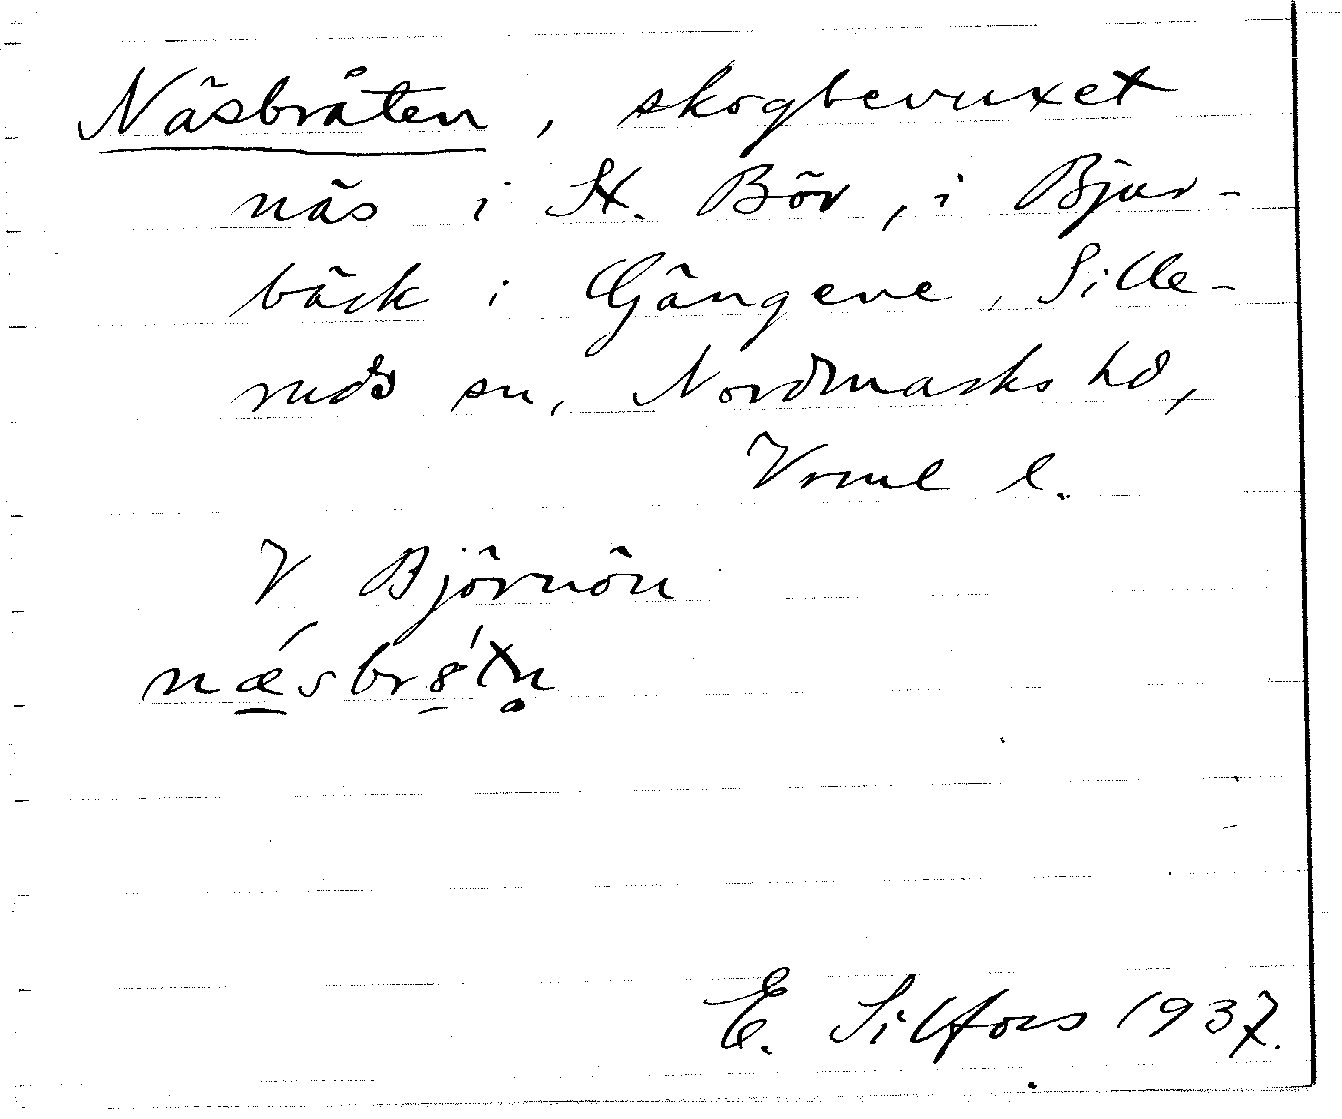 Näsbråten, skogbevuxet
näs i St. Bör, i Bjur-
bäck i Gängene, Sille-
ruds sn, Nordmarks hd,
Vrml l.
V Björnön
nǽ̲sbr8̲́tn̥
E. Silfors 1937.